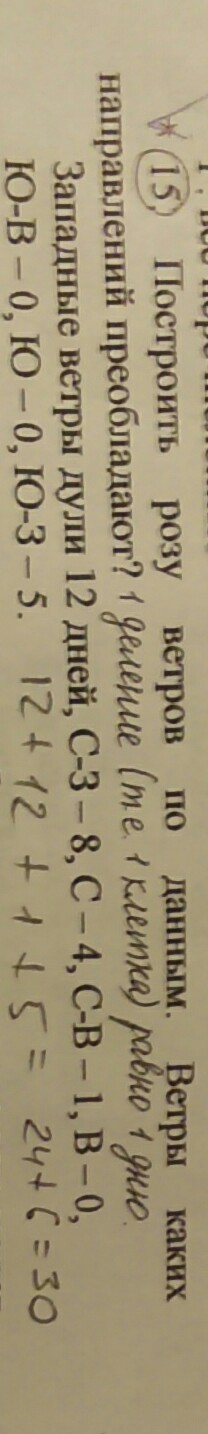 15, Построить розу ветров по данным. Ветры каких
направлений преобладают? 1 деление (т.е. 1 клетка) равно 1 дню.
Западные ветры дули 12 дней, С-З – 8, С – 4, С-В – 1, В – 0,
Ю-В – 0, Ю – 0, Ю-З – 5. 12 + 12 + 1 + 5 = 24 + 6 = 30